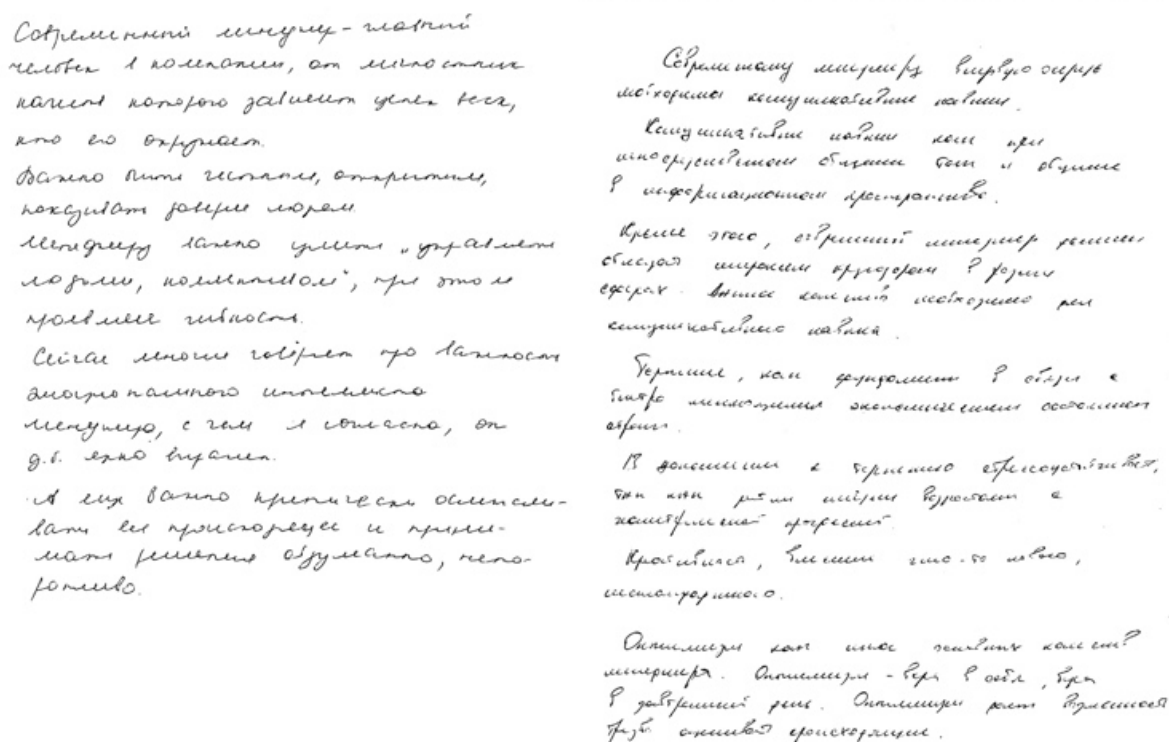 Современный менеджер - главный
человек в компании, от личностных
качеств которого зависит успех всех,
кто его окружает.
Важно быть честным, открытым,
показывать доверие людям.
Менеджеру важно уметь „управлять
людьми, коллективом", при этом
проявляя гибкость.
Сейчас многие говорят про важность
эмоционального интеллекта
менеджера, с чем я согласна, он
д.б. ярко выражен.
А еще важно критически осмысли-
вать все происходящее и прини-
мать решения обдуманно, нето-
ропливо.
Современному менеджеру в первую очередь
необходимы коммуникативные навыки.
Коммуникативные навыки как при
непосредственном общении так и общение
в информационном пространстве.
Кроме этого, современный менеджер должен
обладать широким кругозором в разных
сферах. качеств необходимо для
коммуникативного навыка.
Терпение, как фундамент в связи с
быстро меняющимся экономическим состоянием
страны.
В дополнение к терпению стрессоустойчивость,
так как ритм жизни возрастает с
прогрессией.
Креативность, что-то нового,
нестандартного.
Оптимизм как одно основных качеств
менеджера. Оптимизм - вера в себя, вера
в завтрашний день. Оптимизм дает возможность
трезво оценивать происходящее.